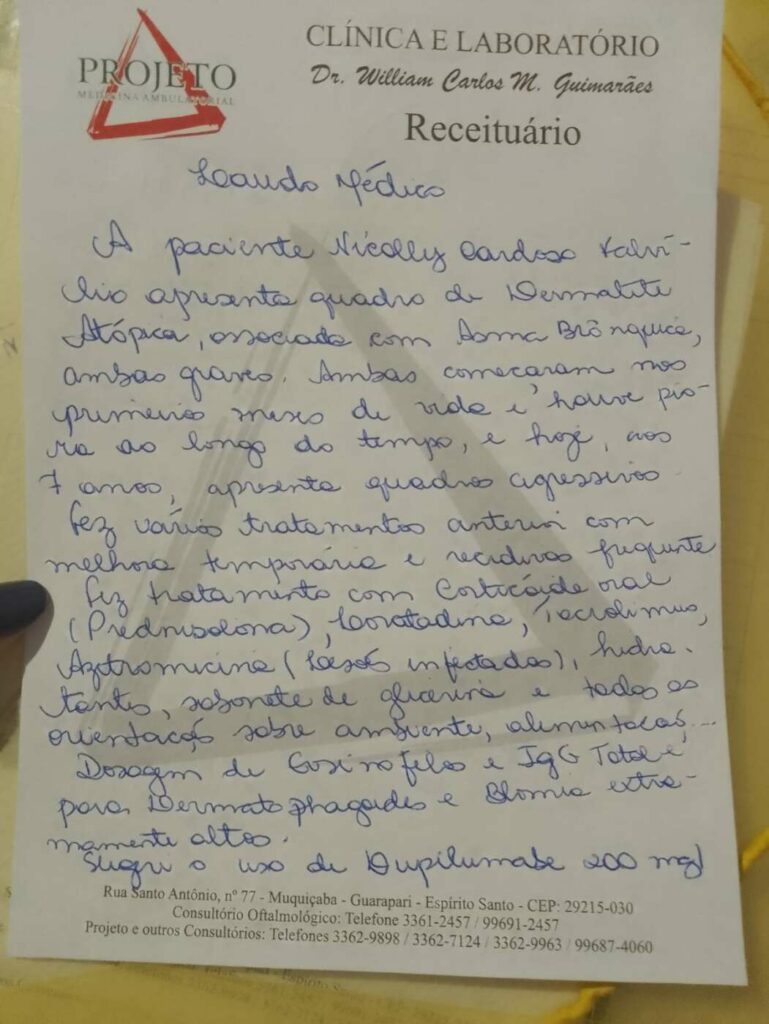 PROJETO
MEDICINA AMBULATORIAL
CLÍNICA E LABORATÓRIO
Dr. William Carlos M. Guimarães
Receituário
Laudo Médico
A paciente Nicolly Cardoso
apresenta quadro de Dermatite
Atópica, associada com Asma Brônquica,
ambas graves. Ambas começaram nos
primeiros meses de vida e houve pio-
ra ao longo do tempo, e hoje, aos
7 anos, apresenta quadros agressivos.
Fez vários tratamentos anterior com
melhora temporária e recidivas frequente
Fez tratamento com Corticóide oral
(Prednisolona), Loratadina, Tacrolimus,
Azitromicina (Lesões infectadas), hidra-
tantes, sabonete de glicerina e todas as
orientação sobre ambiente, alimentação,...
Dosagem de Eosinofelos e IgG Total e
para Dermatophagoides e Blomia extre-
mamente altos.
Sugiro o uso de Dupilumabe 200 mg
Rua Santo Antônio, nº 77 - Muquiçaba - Guarapari - Espírito Santo - CEP: 29215-030
Consultório Oftalmológico: Telefone 3361-2457 / 99691-2457
Projeto e outros Consultórios: Telefones 3362-9898 / 3362-7124 / 3362-9963 / 99687-4060